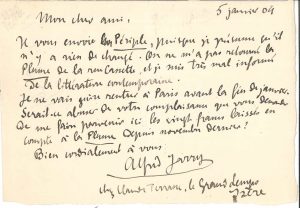 5 janvier 04
Mon cher ami,
Je vous envoie Périple, puisque je présume qu'il
n'y a rien de changé. On ne m'a pas retourné la
Plume de la rencontre, et je suis très mal informé
de la littérature contemporaine.
Je ne vais guère rentrer à Paris avant la fin de janvier.
Serait-ce abuser de votre complaisance que vous demander
de me faire parvenir ici les vingt francs laissés en
compte à la Plume depuis novembre dernier?
Bien cordialement à vous
Alfred Jarry
chez Claude Terrasse, le Grand-Lemps
Isère